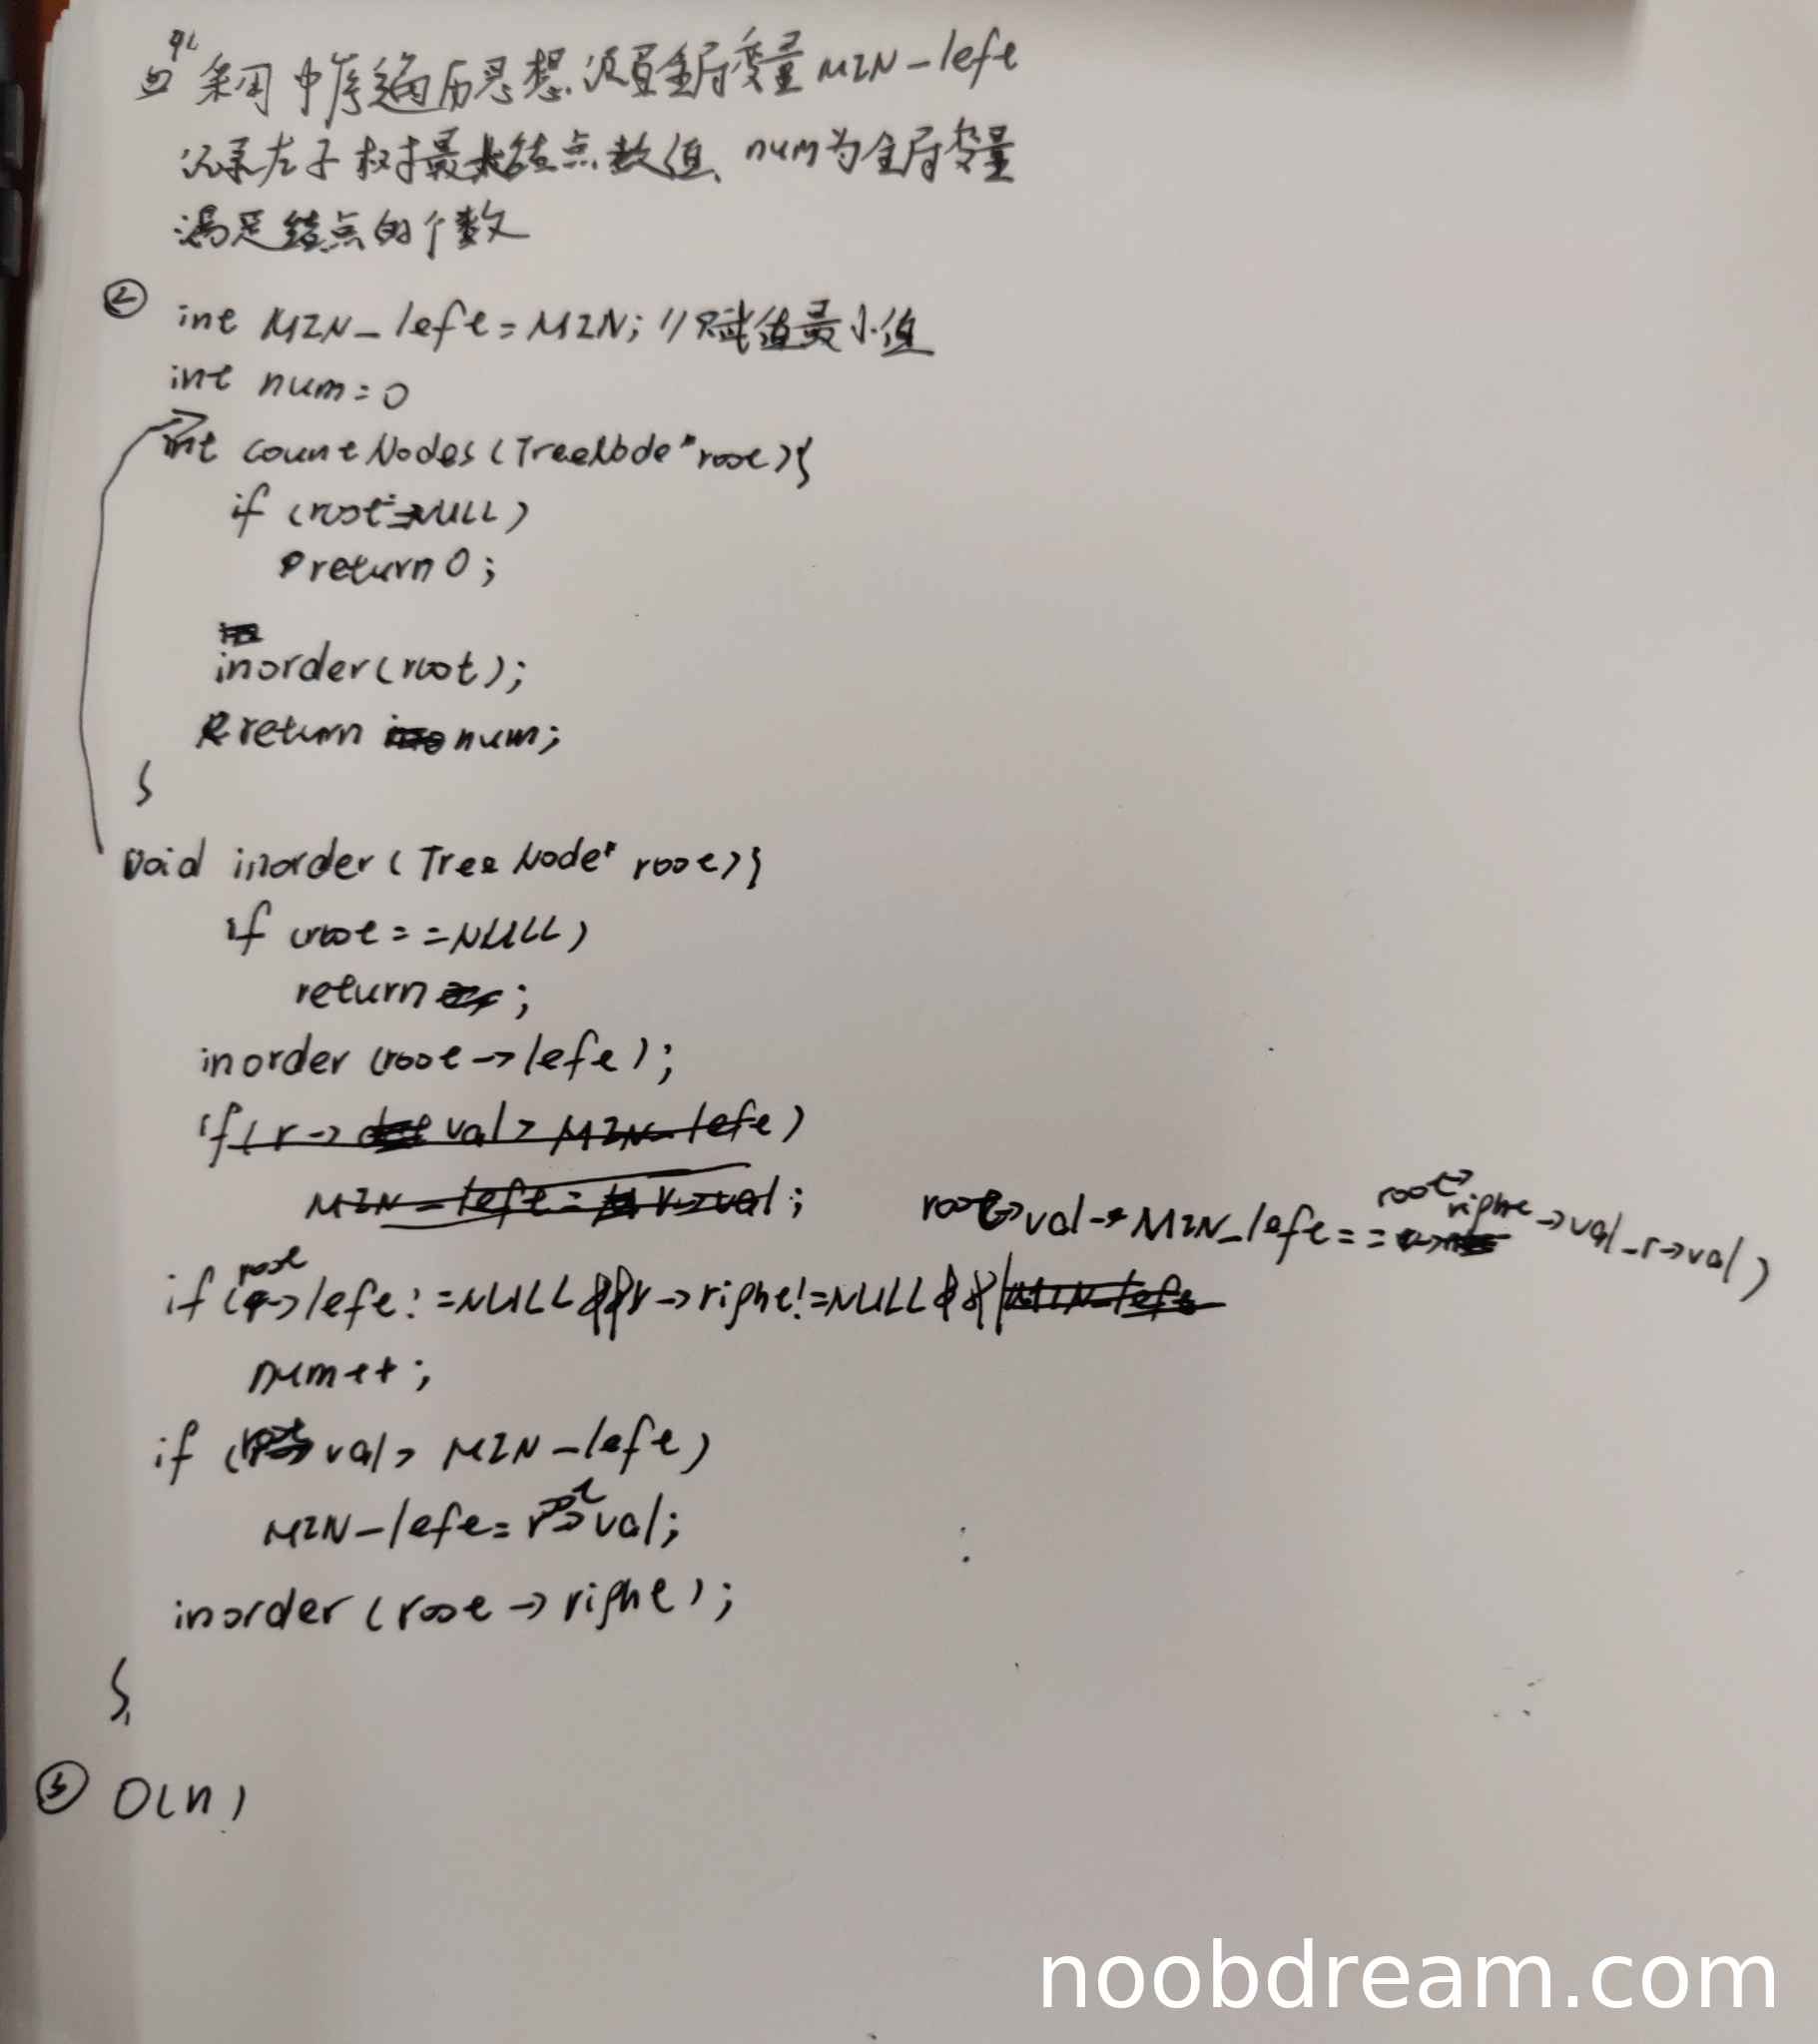 采用中序遍历思想.设置全局变量MIN_left
记录左子树最大结点数值、num为全局变量
满足结点的个数
② int MIN_left=MIN; //赋值最小值
int num=0
int countNodes(TreeNode*root){
if (root==NULL)
return 0;
inorder(root);
return num;
}
void inorder(TreeNode* root){
if (root==NULL)
return ;
inorder(root->left);
if(r-> val> MIN_left)
MIN_left= r->val;
root->val-MIN_left==root->right->val-r->val)
if (root->left!=NULL&&r->right!=NULL&&
num++;
if (root->val> MIN_left)
MIN_left=root->val;
inorder(root->right);
}
③ O(n)
noobdream.com